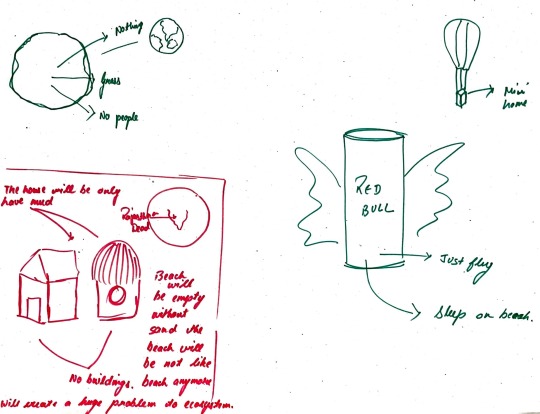 Nothing
Grass
No people
Mini
home
RED
BULL
Just flyy
Sleep on beach.
The house will be only
have mud
Rajasthan
Dead
Beach
will
be empty
without
sand the
beach will
be not like
beach anymore
No buildings.
Will create a huge problem to ecosystem.